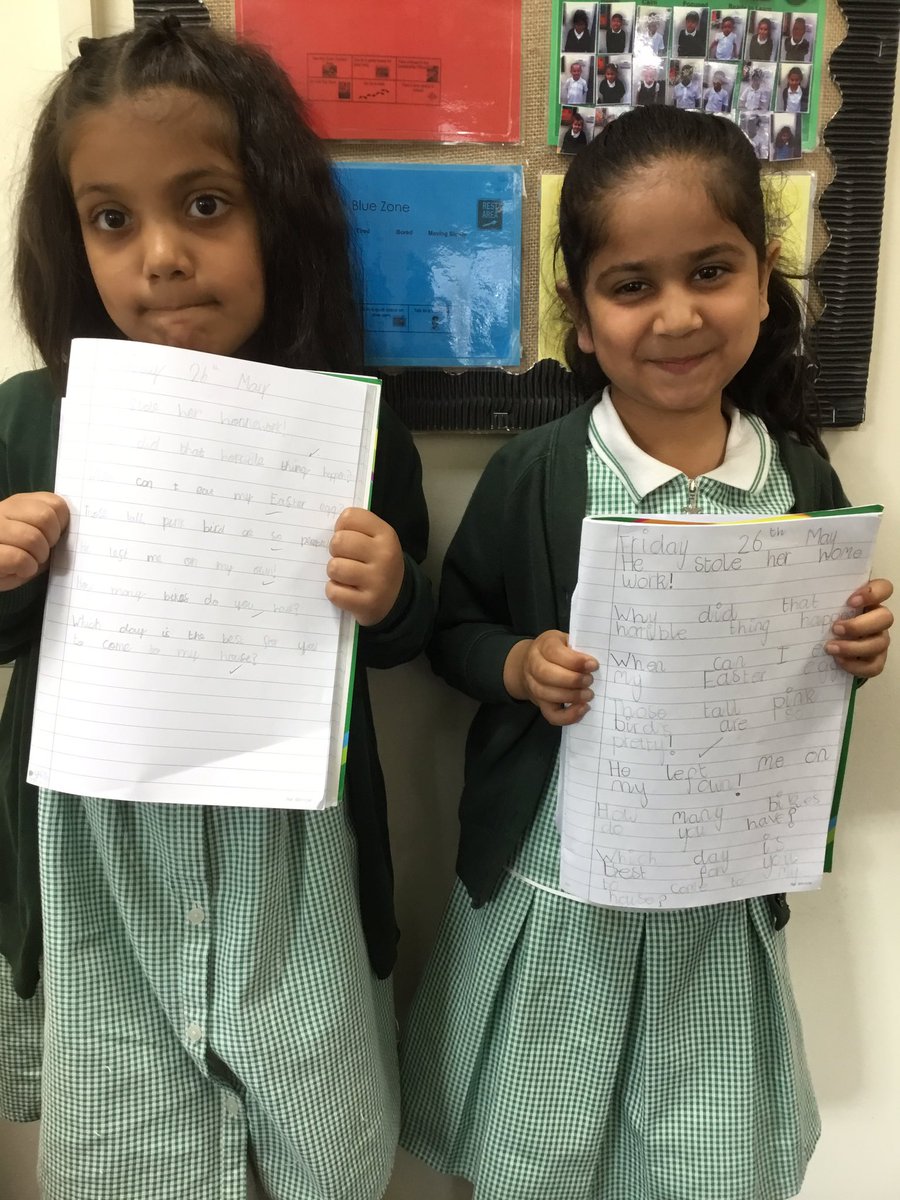 Blue Zone
REST
AREA
Bored Moving Slowly
26th May
stole her homework!
did that horrible thing happen?
can I eat my Easter egg?
Those tall pink bird are so pretty
He left me on my own!
How many bikes do you have?
Which day is the best for you
to come to my house?
Friday 26th May
He stole her wome
work!
Why did that
horrible thing happ
When can I
my Easter egg
Those tall pink
birds are so
pretty!
He left me on
my own!
How many bikes
do you have?
Which day is
best for you
to come to my
house?